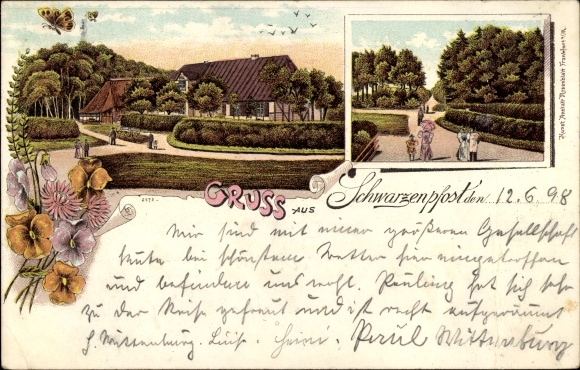 Kunst Anstalt Rosenblatt Frankfurt a/M.
GRUSS AUS Schwarzenpfost den 12.6.98
Wir sind mit einer größeren Gesellschaft
heute bei schönstem Wetter hier eingetroffen
und befinden uns recht. Pauling hat sich sehr
zu der Reise gefreut und ist recht aufgeräumt
H. Wittenburg. Luise. Heini. Paul Wittenburg